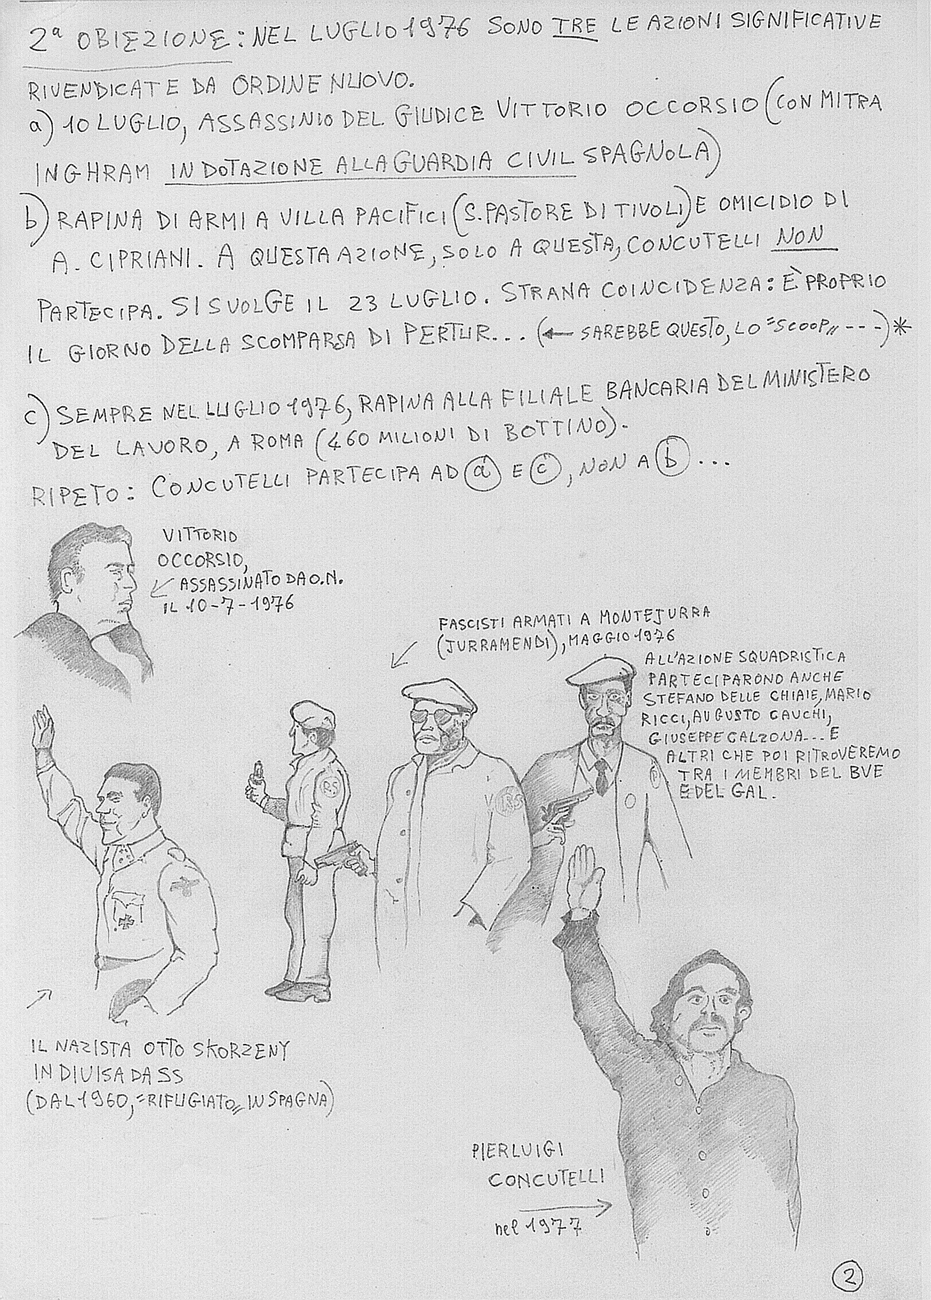 2ª OBIEZIONE: NEL LUGLIO 1976 SONO TRE LE AZIONI SIGNIFICATIVE
RIVENDICATE DA ORDINE NUOVO.
a) 10 LUGLIO, ASSASSINIO DEL GIUDICE VITTORIO OCCORSIO (CON MITRA
INGHRAM IN DOTAZIONE ALLA GUARDIA CIVIL SPAGNOLA)
b) RAPINA DI ARMI A VILLA PACIFICI (S. PASTORE DI TIVOLI) E OMICIDIO DI
A. CIPRIANI. A QUESTA AZIONE, SOLO A QUESTA, CONCUTELLI NON
PARTECIPA. SI SVOLGE IL 23 LUGLIO. STRANA COINCIDENZA: È PROPRIO
IL GIORNO DELLA SCOMPARSA DI PERTUR... (← SAREBBE QUESTO, LO "SCOOP" ---)*
c) SEMPRE NEL LUGLIO 1976, RAPINA ALLA FILIALE BANCARIA DEL MINISTERO
DEL LAVORO, A ROMA (460 MILIONI DI BOTTINO).
RIPETO: CONCUTELLI PARTECIPA AD a E c, NON A b ...
VITTORIO
OCCORSIO,
ASSASSINATO DA O.N.
IL 10-7-1976
FASCISTI ARMATI A MONTEJURRA
(JURRAMENDI), MAGGIO 1976
ALL'AZIONE SQUADRISTICA
PARTECIPARONO ANCHE
STEFANO DELLE CHIAIE, MARIO
RICCI, AUGUSTO CAUCHI,
GIUSEPPE CALZONA... E
ALTRI CHE POI RITROVEREMO
TRA I MEMBRI DEL BVE
E DEL GAL.
IL NAZISTA OTTO SKORZENY
IN DIVISA DA SS
(DAL 1960, "RIFUGIATO" IN SPAGNA)
PIERLUIGI
CONCUTELLI
nel 1977
2